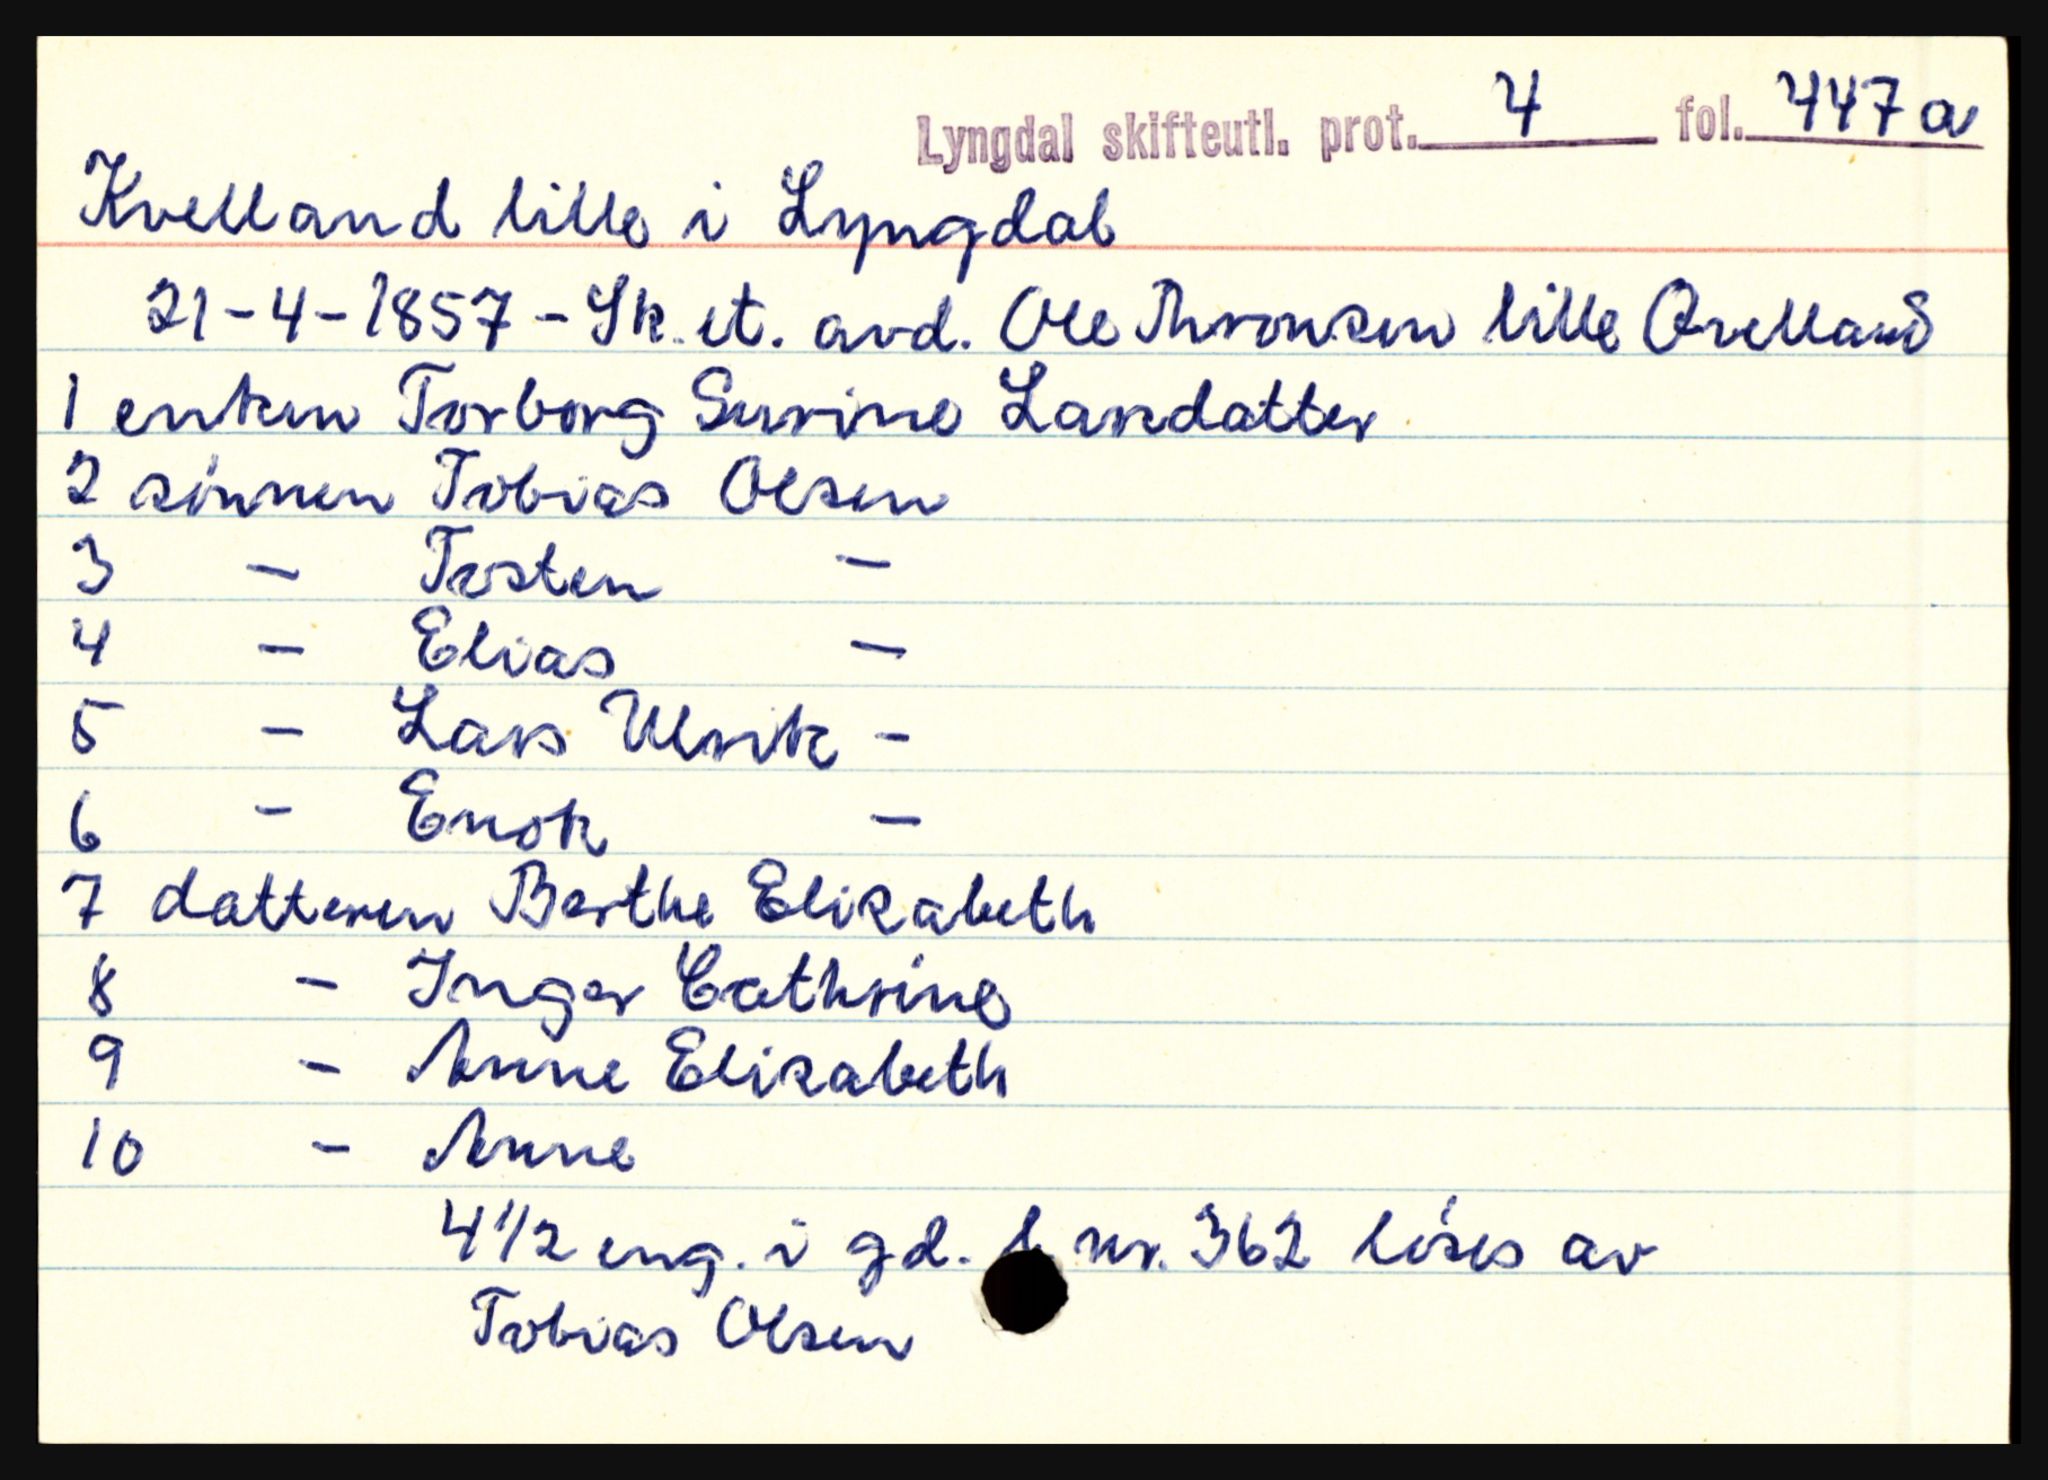 Lyngdal skifteutl. prot. 4 fol. 447a
Kvelland lille i Lyngdal
21-4-1857 - Sk. et. avd. Ole Thronsen lille Qvelland
1 enken Torborg Serine Larsdatter
2 sönnen Tobias Olsen
3 - Tosten -
4 - Elias -
5 - Lars Ulrik -
6 - Enok -
7 datteren Berthe Elizabeth
8 - Inger Cathrine
9 - Anne Elizabeth
10 - Anne
4 1/2 eng. i gd. l nr. 362 löses av
Tobias Olsen